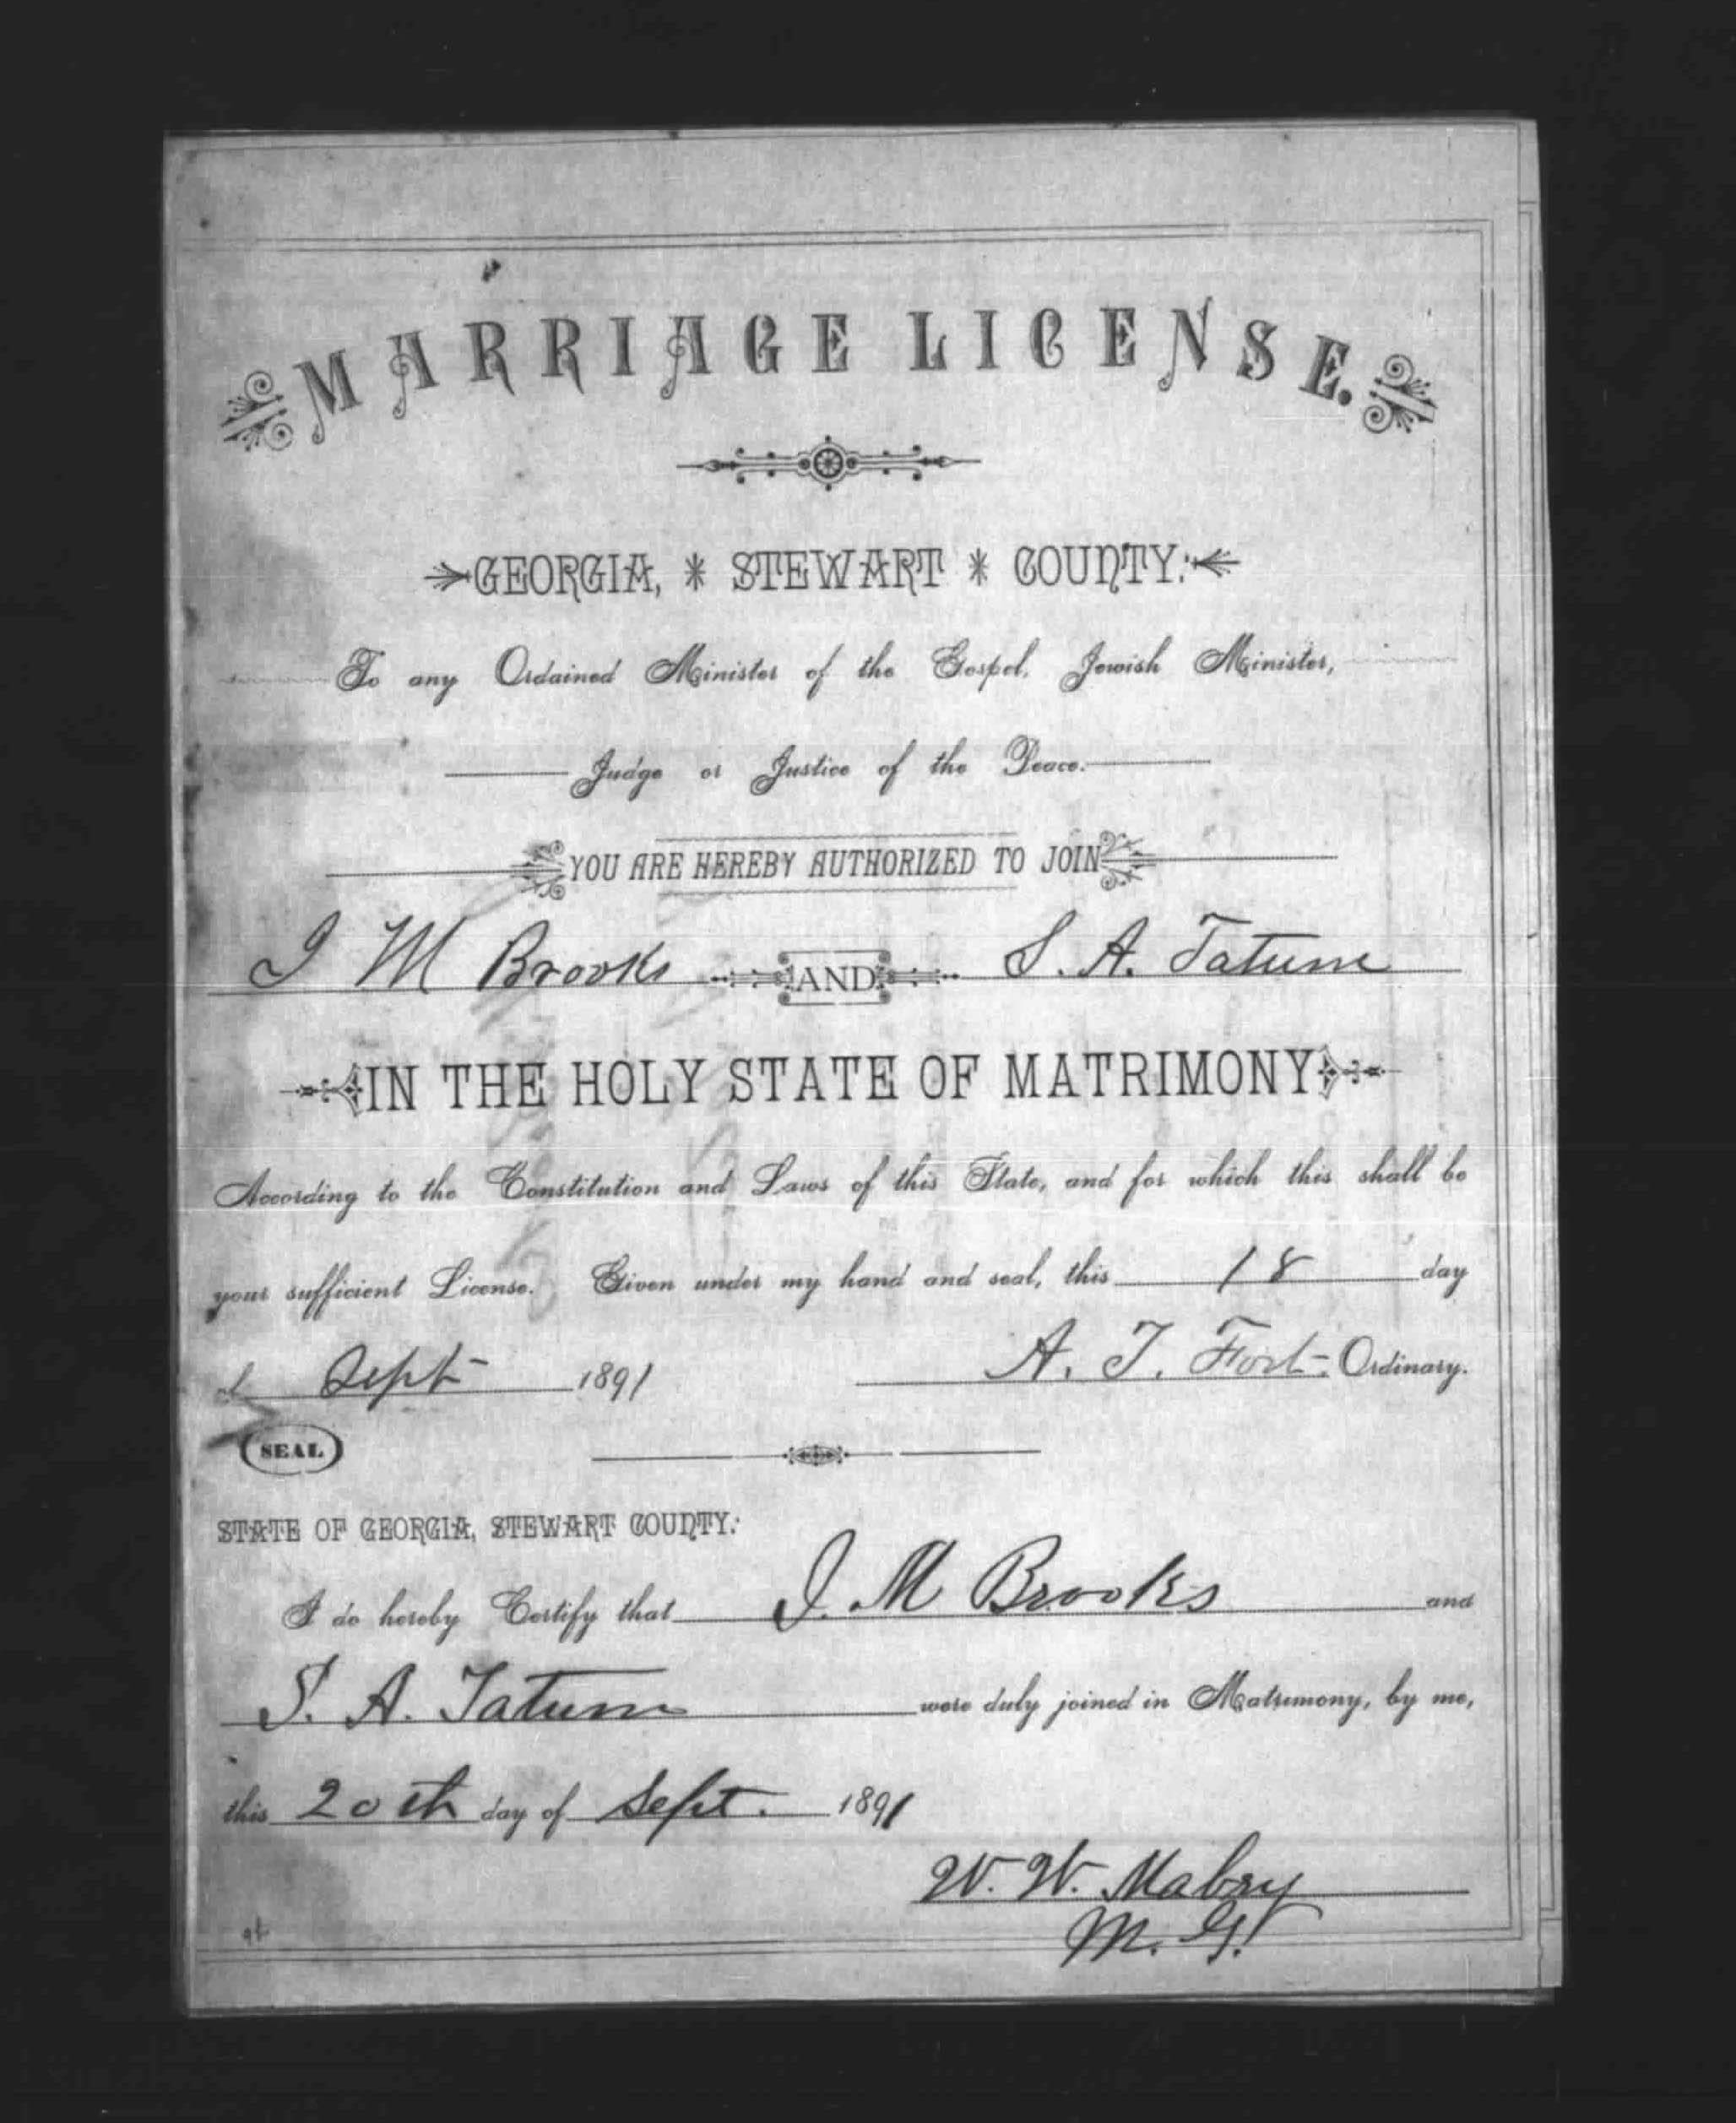 MARRIAGE LICENSE.
GEORGIA, * STEWART * COUNTY:
To any Ordained Minister of the Gospel, Jewish Minister,
Judge or Justice of the Peace.
YOU ARE HEREBY AUTHORIZED TO JOIN
J M Brooks AND S. A. Tatum
IN THE HOLY STATE OF MATRIMONY
According to the Constitution and Laws of this State, and for which this shall be
your sufficient License. Given under my hand and seal, this 18 day
of Sept 1891 A. T. Fort Ordinary.
SEAL
STATE OF GEORGIA, STEWART COUNTY:
I do hereby Certify that J. M Brooks and
S. A. Tatum were duly joined in Matrimony, by me,
this 20th day of Sept. 1891
W. W. Mabry
M. G.